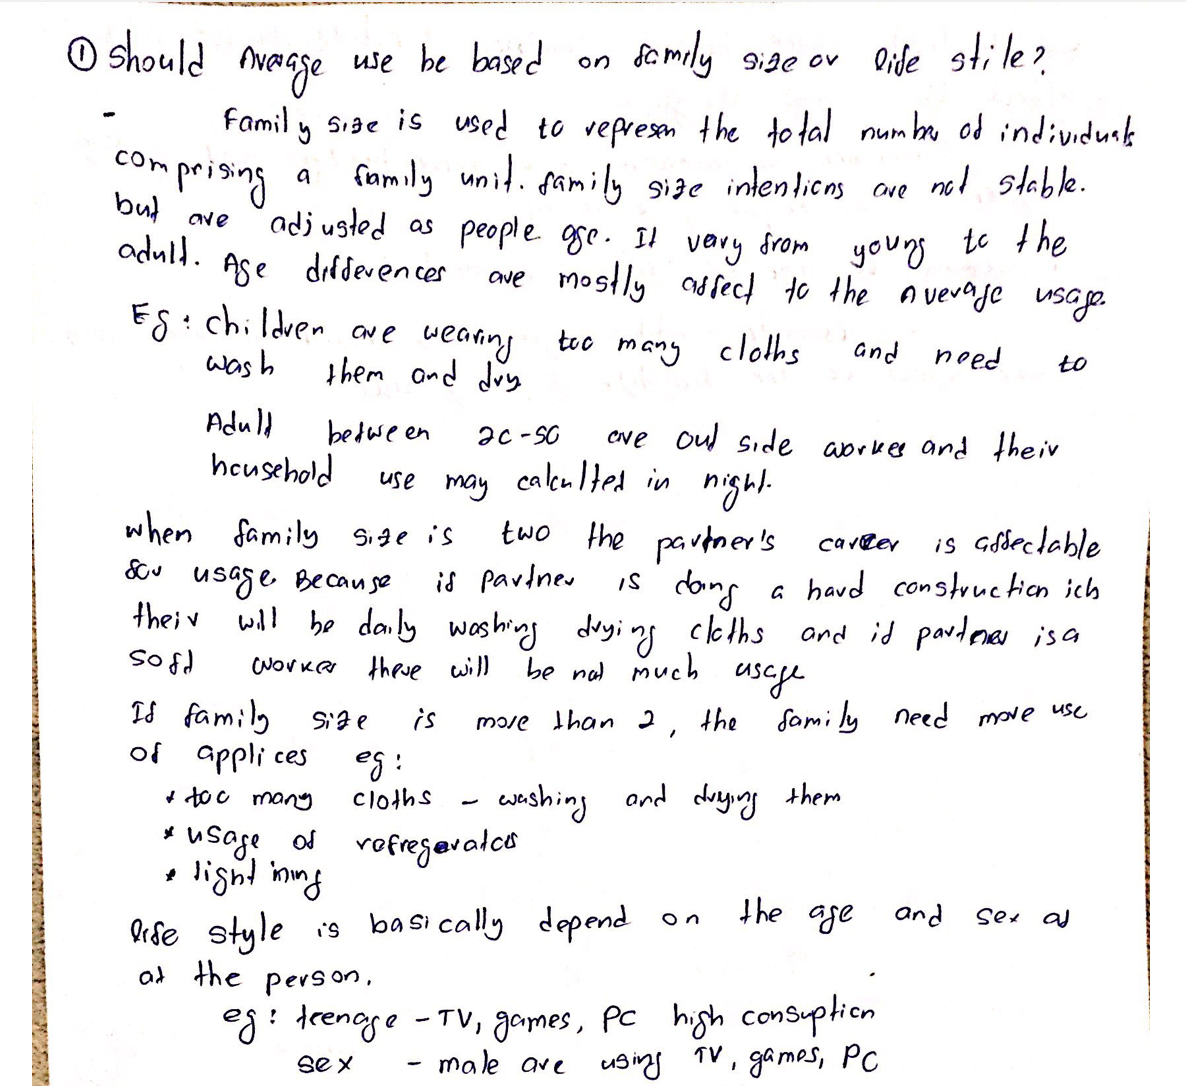 ① Should Average use be based on family size or life stile?
- Family size is used to represen the total number of individuals
comprising a family unit. family size intentions are not stable.
but are adjusted as people age. It vary from young to the
adult. Age differences are mostly affect to the average usage.
Eg : children are wearing too many cloths and need to
wash them and dry
Adult between 20-50 are out side worker and their
household use may calculted in night.
when family size is two the partner's career is affectable
for usage. Because if partner is doing a hard construction job
their will be daily washing drying cloths and if partner is a
soft worker there will be not much usage
If family size is more than 2, the family need more use
of applices eg :
* too many cloths - washing and drying them
* usage of refregerator
* light ining
life style is basically depend on the age and sex of
at the person.
eg : teenage - TV, games, PC high consuption
sex - male are using TV, games, PC